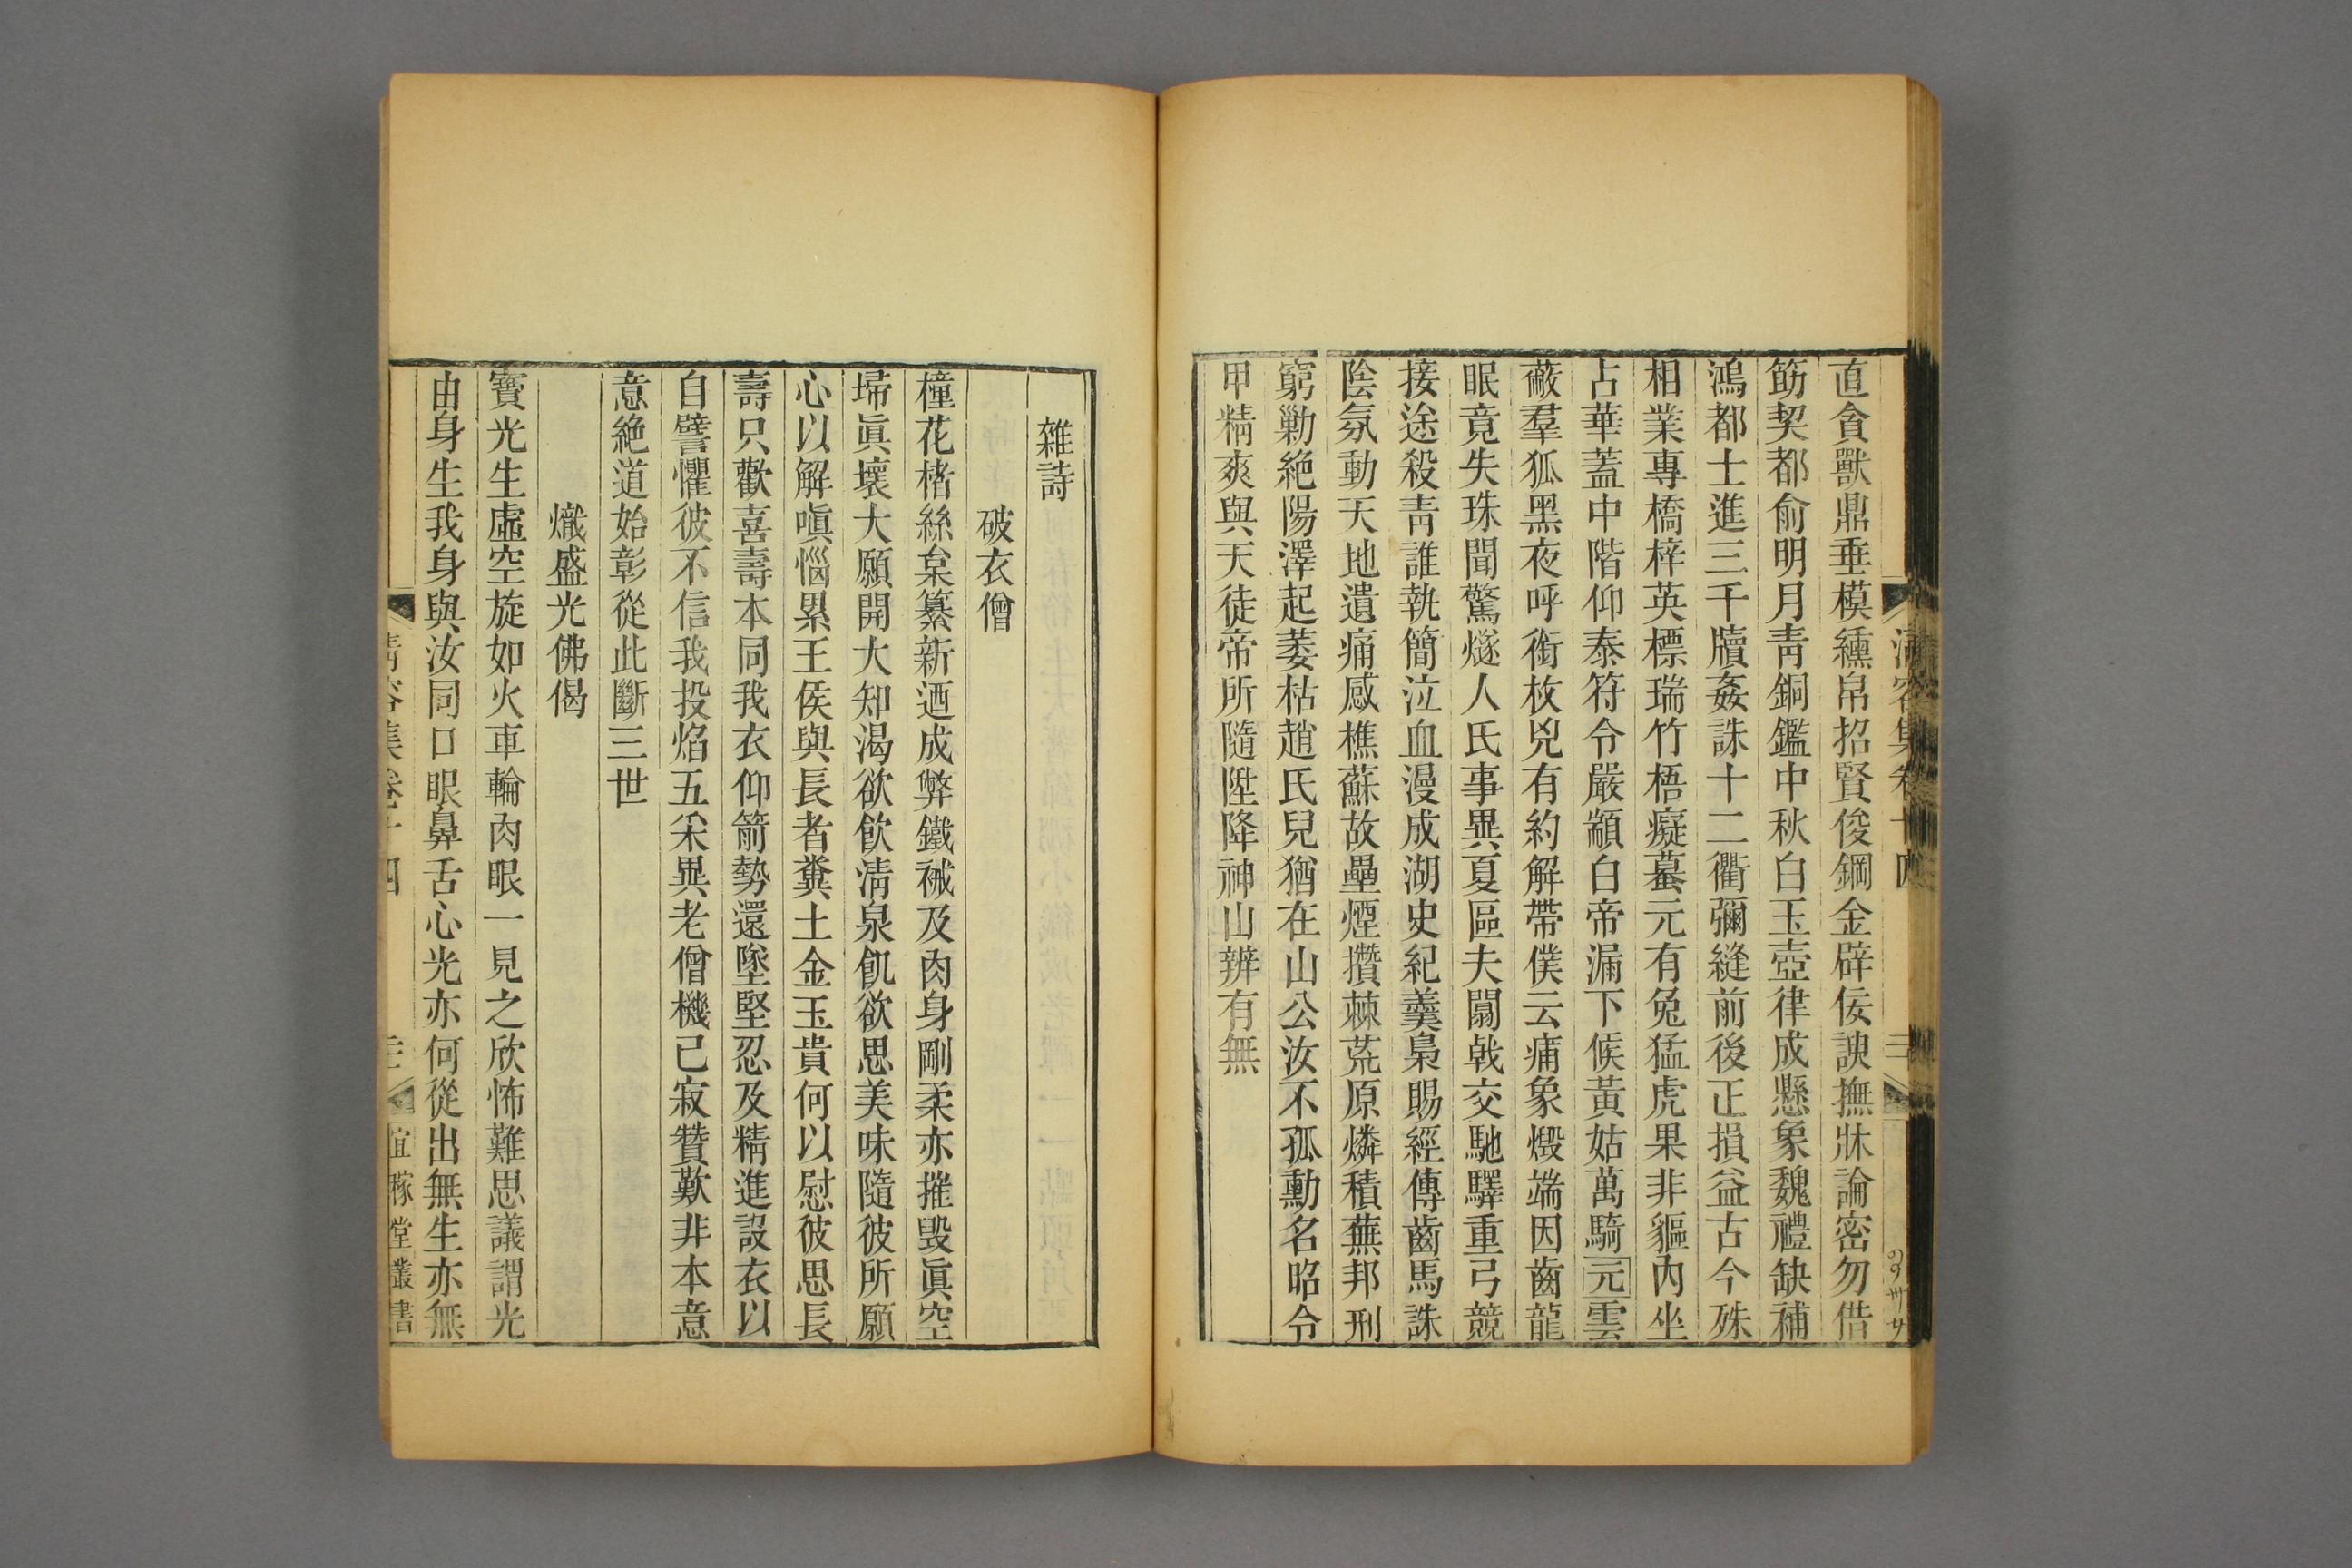 直貪獸鼎垂模纁帛招賢俊鋼金辟佞諛撫牀論密勿借
筯契都俞明月靑銅鑑中秋白玉壺律成懸象魏禮缺補
鴻都士進三千牘姦誅十二衢彌縫前後正損益古今殊
相業專橋梓英標瑞竹梧癡蟇元有兔猛虎果非貙內坐
占華蓋中階仰泰符令嚴顓白帝漏下候黃姑萬騎元雲
蔽羣狐黑夜呼銜枚兇有約解帶僕云痡象燬端因齒龍
眠竟失珠聞驚燧人氏事異夏區夫闒戟交馳驛重弓競
接途殺靑誰執簡泣血漫成湖史紀羹梟賜經傳齒馬誅
陰氛動天地遺痛感樵蘇故壘煙攢棘荒原燐積蕪邦刑
窮勦絶陽澤起萎枯趙氏兒猶在山公汝不孤勳名昭令
甲精爽與天徒帝所隨陞降神山辨有無
清容集卷十四
雜詩
破衣僧
橦花楮絲枲纂新迺成弊鐵裓及肉身剛柔亦摧毁眞空
埽眞壞大願開大知渴欲飮淸泉飢欲思美味隨彼所願
心以解嗔惱累王侯與長者糞土金玉貴何以慰彼思長
壽只歡喜壽本同我衣仰箭勢還墜堅忍及精進設衣以
自譬懼彼不信我投焰五采異老僧機已寂贊歎非本意
意絶道始彰從此斷三世
熾盛光佛偈
寶光生虛空旋如火車輪肉眼一見之欣怖難思議謂光
由身生我身與汝同口眼鼻舌心光亦何從出無生亦無
淸容集卷十四
宜稼堂叢書